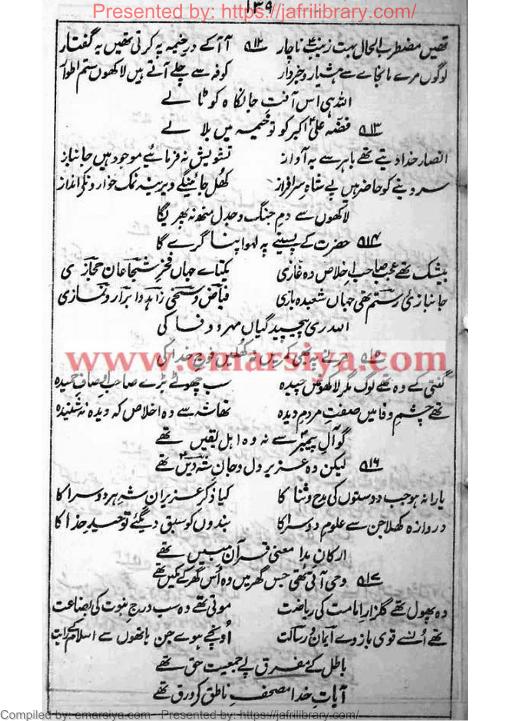 Presented by: https://jafrilibrary.com/
۱۳۹
تھیں مضطرب الحال بہت زینبؑ ناچار ۵۱۲ آ آ کے در خیمہ پہ کرتی تھیں یہ گفتار
لوگوں مرے مانجائے سے ہشیار و خبردار کوفہ سے چلے آتے ہیں لاکھوں ستم اطوار
اللہ ہی اس آفت جانکاہ کو ٹالے
۵۱۳ فضّہ علی اکبر کو تو خیمہ میں بلا لے
انصار خدا دیتے تھے باہر سے یہ آواز تشویش نہ فرمائیے موجود ہیں جانباز
سر دینے کو حاضر ہیں پے شاہِ سرافراز کھُل جائینگے دیرینہ نمک خوار و
لاکھوں سے دمِ جنگ و جدل منھ نہ پھریگا
۵۱۴ حضرت کے پسینے پہ لہو اپنا گرے گا
بیشک تھے عجب صاحب اخلاص وہ غازی یکتاے جہاں فخرِ شجاعانِ حجازی
جانبازی رستم تھی جہاں شعبدہ بازی فیاض و سخی زاہد و ابرار و نمازی
اللہ ری پیچیدگیاں مہر و وفا کی
www.emarsiya.com
۵۱۵
گنتی کے وہ تھے لوگ مگر لاکھوں میں چیدہ سب چھوٹے بڑے صاحب اوصاف حمیدہ
تھے چشمِ وفا میں صفتِ مردمِ دیدہ تھا شہ سے وہ اخلاص کہ دیدہ نہ شنیدہ
گو آلِ پیمبرؐ سے نہ وہ اہل یقیں تھے
۵۱۶ لیکن وہ عزیز دل و جانِ شہِ دیں تھے
یارا نہ ہو جب دوستوں کی مدح و ثنا کا کیا ذکر عزیزانِ شہِ ہر دوسرا کا
دروازہ کھلا جن سے علومِ دوسرا کا بندوں کو سبق دیگئے توحیدِ خدا کا
ارکانِ ہدا معنی قرآن مبیں تھے
۵۱۷ وحی آتی تھی جس گھر میں وہ اُس گھر کے مکیں تھے
وہ پھول تھے گلزارِ امامت کی ریاضت موتی تھے وہ سب درجِ نبوت کی بضاعت
تھے اُنسے قوی بازوے ایمان و رسالت اونچے ہوے جن ہاتھوں سے اسلام کے رایت
باطل کے مفرق پے جمعیت حق تھے
آیات خدا مصحف ناطق کے ورق تھے
Compiled by: emarsiya.com - Presented by: https://jafrilibrary.com/